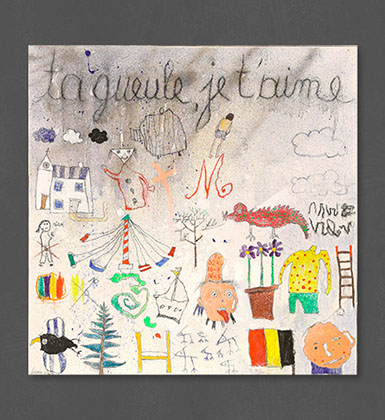 ta gueule, je t'aime
M
H